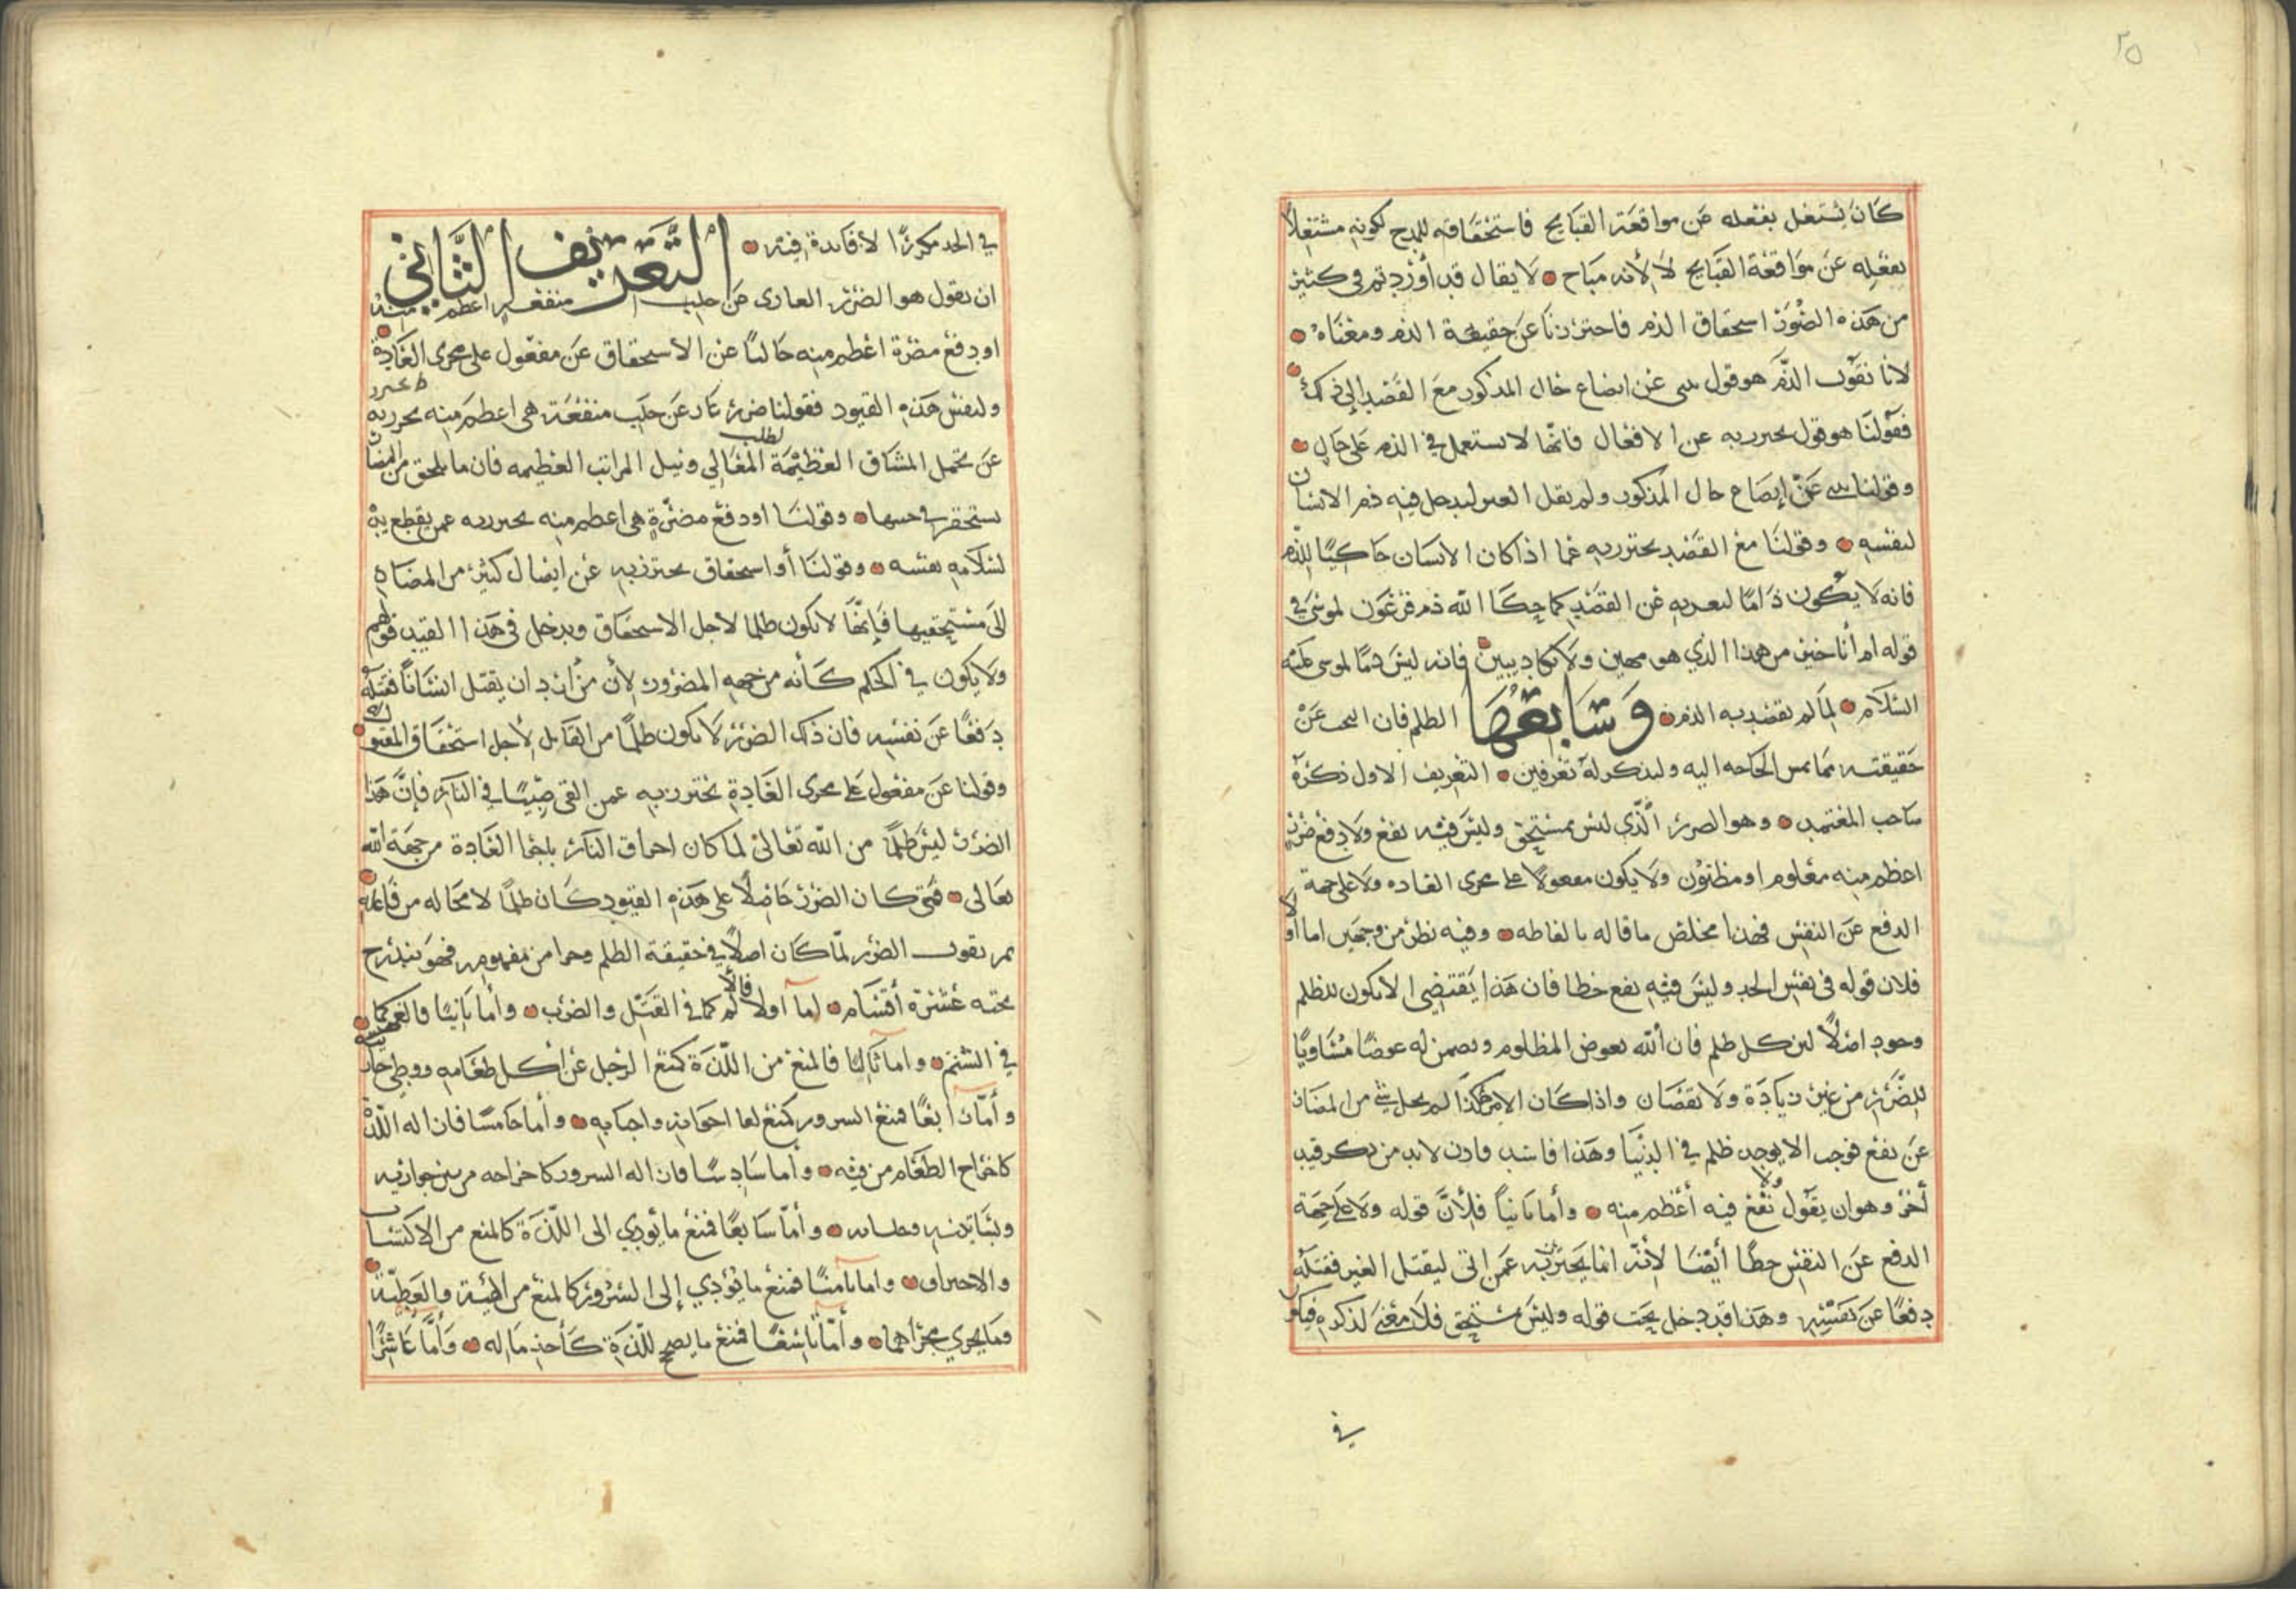 ٢٥
كان يشتغل بفعله عن مواقعة القبايح فاستحقاقه للمدح لكونه مشتغلا
بفعله عن مواقعة القبايح لا لأنه مباح لا يقال قد أوردتم في كثير
من هذه الصور استحقاق الذم فاحترزنا عن حقيقة الذم ومعناه
لانا نقول الذم هو قول ينبي عن ايضاع حال المذكور مع القصد إلى ذلك
فقولنا هو قول يحترز به عن الافعال فانها لا تستعمل في الذم على حال
وقولنا ينبي عن إيضاع حال المذكور ولم يقل الغير ليدخل فيه ذم الانسان
لنفسه وقولنا مع القصد يحترز به عما اذا كان الانسان حاكيا للذم
فانه لا يكون ذاما لتعريه عن القصد كما حكا الله ذم فرعون لموسى في
قوله ام أنا خير من هذا الذي هو مهين ولا يكاد يبين فانه ليس ذما لموسى عليه
السلام لما لم يقصد به الذم وسابعها الظلم فان البحث عن
حقيقته مما تمس الحاجه اليه ولنذكر له تعريفين التعريف الاول ذكره
صاحب المعتمد وهو الضرر الذي ليس بمستحق وليس فيه نفع ولا دفع ضرر
اعظم منه معلوم او مظنون ولا يكون مفعولا على مجرى العاده ولا على جهة
الدفع عن النفس فهذا مخلص ما قاله بالفاظه وفيه نظر من وجهين اما أولا
فلان قوله في نفس الحد وليس فيه نفع خطا فان هذا يقتضي الا يكون للظلم
وجود اصلا لان كل ظلم فان الله يعوض المظلوم ويضمن له عوضا مساويا
للضرر من غير زيادة ولا نقصان واذا كان الامر هكذا لم يخل شي من المضار
عن نفع فوجب الا يوجد ظلم في الدنيا وهذا فاسد فاذن لابد من ذكر قيد
أخر وهو ان يقول ولا نفع فيه أعظم منه وأما ثانيا فلأن قوله ولا على جهة
الدفع عن النفس خطا أيضا لأنه انما يحترز به عمن اتى ليقتل الغير فقتله
دفعا عن نفسه وهذا قد دخل تحت قوله وليس بمستحق فلا معنى لذكره فيكون
في
في الحد مكررا لا فائدة فيه التعريف الثاني
ان نقول هو الضرر العاري عن جلب منفعه اعظم منه
او دفع مضرة اعظم منه خاليا عن الاستحقاق عن مفعول على مجرى العادة
ولنفسر هذه القيود فقولنا ضرر عار عن جلب منفعة هي اعظم منه يحترز به
عن تحمل المشاق العظيمة لطلب المعالي ونيل المراتب العظيمه فان ما يلحق من المضار
يستحقر في جنبها وقولنا او دفع مضرة هي اعظم منه يحترز به عمن يقطع يده
لسلامه نفسه وقولنا أو استحقاق يحترز به عن ايصال كثير من المضار
الى مستحقيها فإنها لا تكون ظلما لاجل الاستحقاق ويدخل في هذا القيد قولهم
ولا يكون في الحكم كأنه من جهه المضرور لأن من اراد ان يقتل انسانا فقتله
دفعا عن نفسه فان ذلك الضرر لا يكون ظلما من القاتل لأجل استحقاق المقتول
وقولنا عن مفعول على مجرى العادة يحترز به عمن القى صبيا في النار فإن هذا
الضرر ليس ظلما من الله تعالى لما كان احراق النار بمجرى العادة من جهة الله
تعالى فمتى كان الضرر حاصلا على هذه القيود كان ظلما لا محاله من فاعله
ثم نقول الضرر لما كان اصلا في حقيقة الظلم وجزا من مفهومه فهو يندرج
تحته عشرة أقسام اما أولا فالألم كما في القتل والضرب وأما ثانيا فالغم كما
في الشتم واما ثالثا فالمنع من اللذة كمنع الرجل عن أكل طعامه ووطي جاريته
وأما رابعا فمنع السرور كمنع لقا اخوانه واحبابه وأما خامسا فازاله اللذة
كاخراج الطعام من فيه وأما سادسا فازاله السرور كاخراجه من بين جواريه
وبساتينه وأما سابعا فمنع ما يؤدي الى اللذة كالمنع من الاكتساب
والاحتراف واما ثامنا فمنع ما يؤدي إلى السرور كالمنع من الهبة والعطية
وما يجري مجراهما وأما تاسعا فمنع ما يصحح للذة كأخذ ماله وأما عاشرا